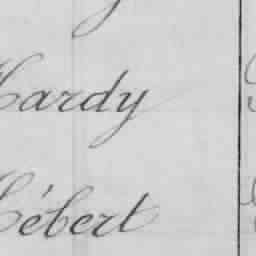 Hardy
Hébert